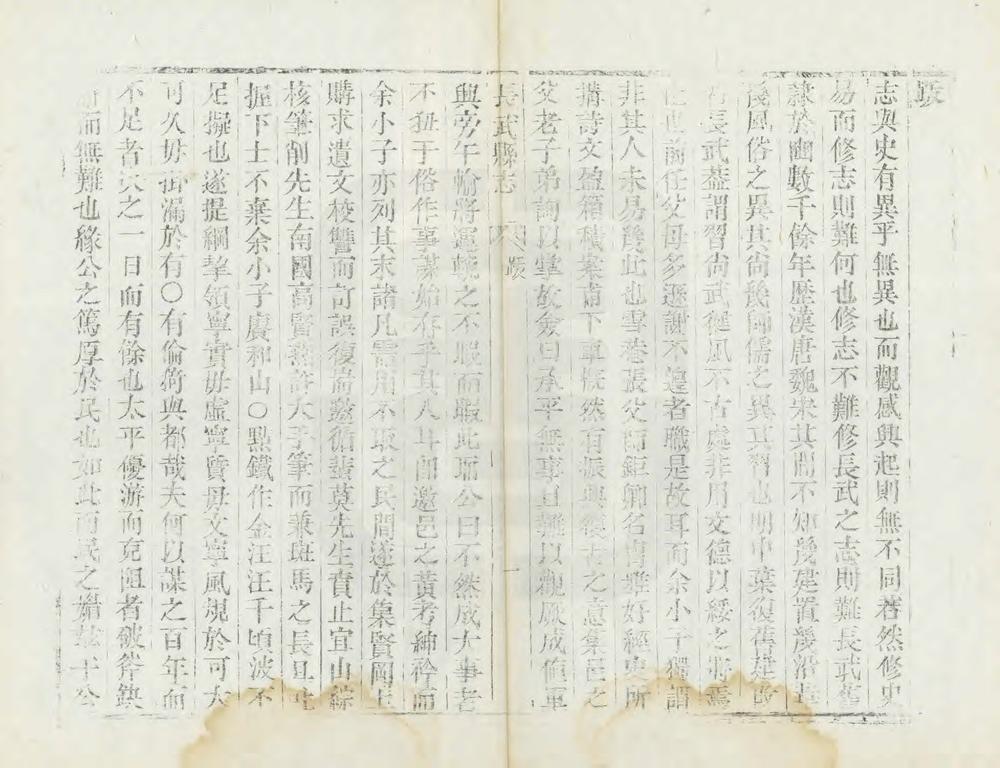 跋
志與史有異乎無異也而觀感興起則無不同者然修史
易而修志則難何也修志不難修長武之志則難長武舊
隸於豳數千餘年歷漢唐魏宋其間不知幾建置幾沿革
幾風俗之異其尚幾師儒之異其習也明中葉復舊建改
名長武葢謂習尚武健風不古處非用文德以綏之將焉
也前任父母多遜謝不遑者職是故耳而余小子獨謂
非其人未易幾此也雪菴張父師鉅卿名冑雅好經史所
搆詩文盈箱積案甫下車慨然有振興之意集邑之
父老子弟詢以掌故僉曰承平無事且難以觀厥成値軍
長武縣志 跋 一
興旁午輸將運輓之不暇而暇此耶公曰不然成大事者
不狃于俗作事謀始存乎其人耳卽邀邑之黃考紳衿而
余小子亦列其末諸凡器用不取之民間遂於集賢閣上
購求遺文校讐而訂誤復耑邀循蜚莫先生賁止宜山綜
核筆削先生南國高賢燕許大手筆而兼班馬之長且吐
握下士不棄余小子賡和山〇點鐵作金汪汪千頃波不
足擬也遂提綱挈領寧實毋虛寧質毋文寧風規於可大
可久毋掛漏於有〇有倫猗與都哉夫何以謀之百年而
不足者成之一日而有餘也太平優游而克阻者破斧缺
斨而無難也緣公之篤厚於民也如此而民之媚玆于公